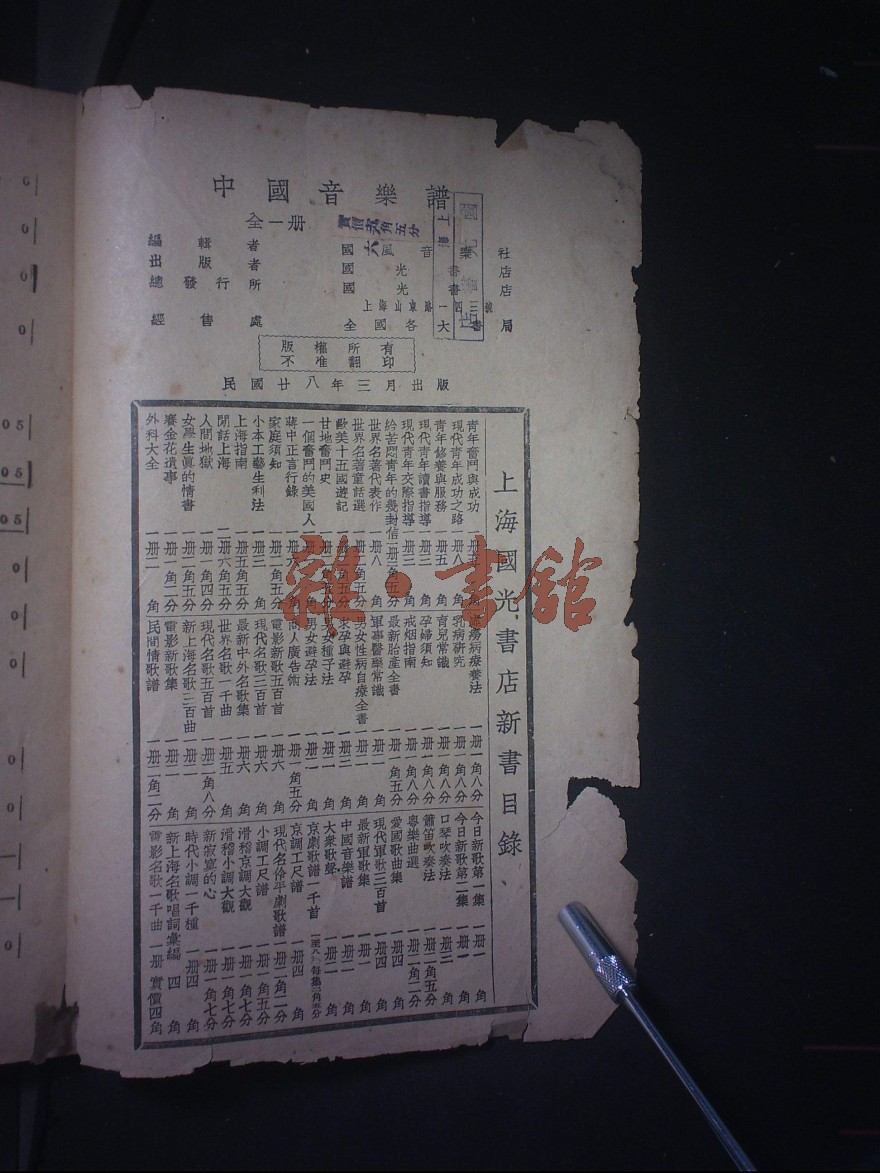 中國音樂譜
全一册
實價 角五分
編輯者 國風音樂社
出版者 國光書店
總發行所 國光書店
上海山東路一四三號
經售處 全國各大書局
版權所有
不准翻印
民國廿八年三月出版
上海國光書店新書目錄
青年奮鬥與成功
現代青年成功之路 一册八
青年修養與服務 一册五
現代青年讀書指導 一册三
現代青年交際指導 一册三
給苦悶青年的幾封信 一册二角五分
世界名著代表作 一册八角
世界名著童話選
歐美十五國遊記
甘地奮鬥史
一個奮鬥的美國人
蔣中正言行錄
家庭須知 一册二角五分
小本工藝生利法 一册三角
上海指南 一册五角五分
閒話上海 一册六角五分
人間地獄 一册一角四分
女學生眞的情書 一册二角五分
賽金花遺事 一册一角二分
外科大全 一册二角
癆病療養法 一册一角八分
乳病研究 一册一角八分
育兒常識 一册一角八分
孕婦須知 一册一角八分
戒烟指南 一册一角八分
最新胎產全書 一册一角五分
軍事醫藥常識 一册二角
男女性病自療全書 一册二角
求孕與避孕 一册三角
男女種子法 一册二角
男女避孕法 一册二角
商人廣告術 一册一角五分
電影新歌五百首 一册六角
現代名歌三百首 一册六角
最新中外名歌集 一册六角
世界名歌一千曲 一册五角
現代名歌五百首 一册二角八分
新上海名歌三百曲 一册二角
電影新歌集 一册二角
民間情歌譜 一册二角二分
今日新歌第一集 一册一角
今日新歌第二集 一册一角
口琴吹奏法 一册三角
簫笛吹奏法 一册二角五分
粵樂曲選 一册二角二分
愛國歌曲集 一册四角
現代軍歌三百首 一册四角
最新軍歌集 一册一角
中國音樂譜 一册二角
大衆歌聲 一册二角
京劇歌譜一千首
京調工尺譜 一册四角
現代名伶平劇歌譜 一册二角二分
小調工尺譜 一册一角五分
滑稽京調大觀 一册一角七分
滑稽小調大觀 一册一角七分
新寂寞的心 一册一角七分
時代小調一千種 一册四角
新上海名歌唱詞彙編 四角
電影名歌一千曲 一册 實價四角
雜·書館